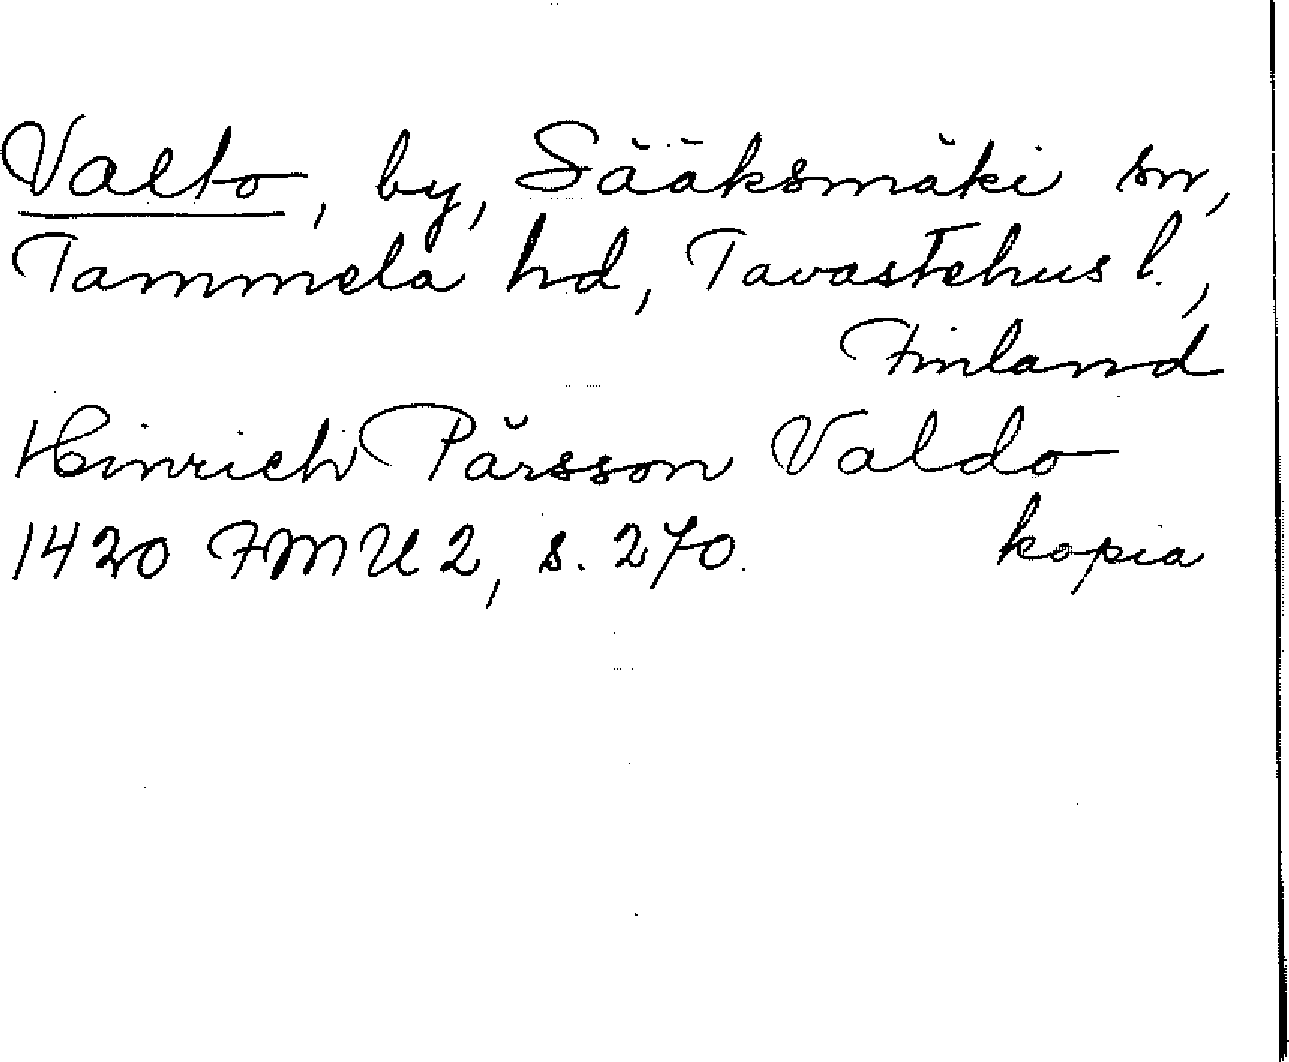 Valto, by, Sääksmäki sn,
Tammela hd, Tavastehus l.,
Finland
Hinrich Pärsson Valdo
1420 FMU 2, s. 270. kopia